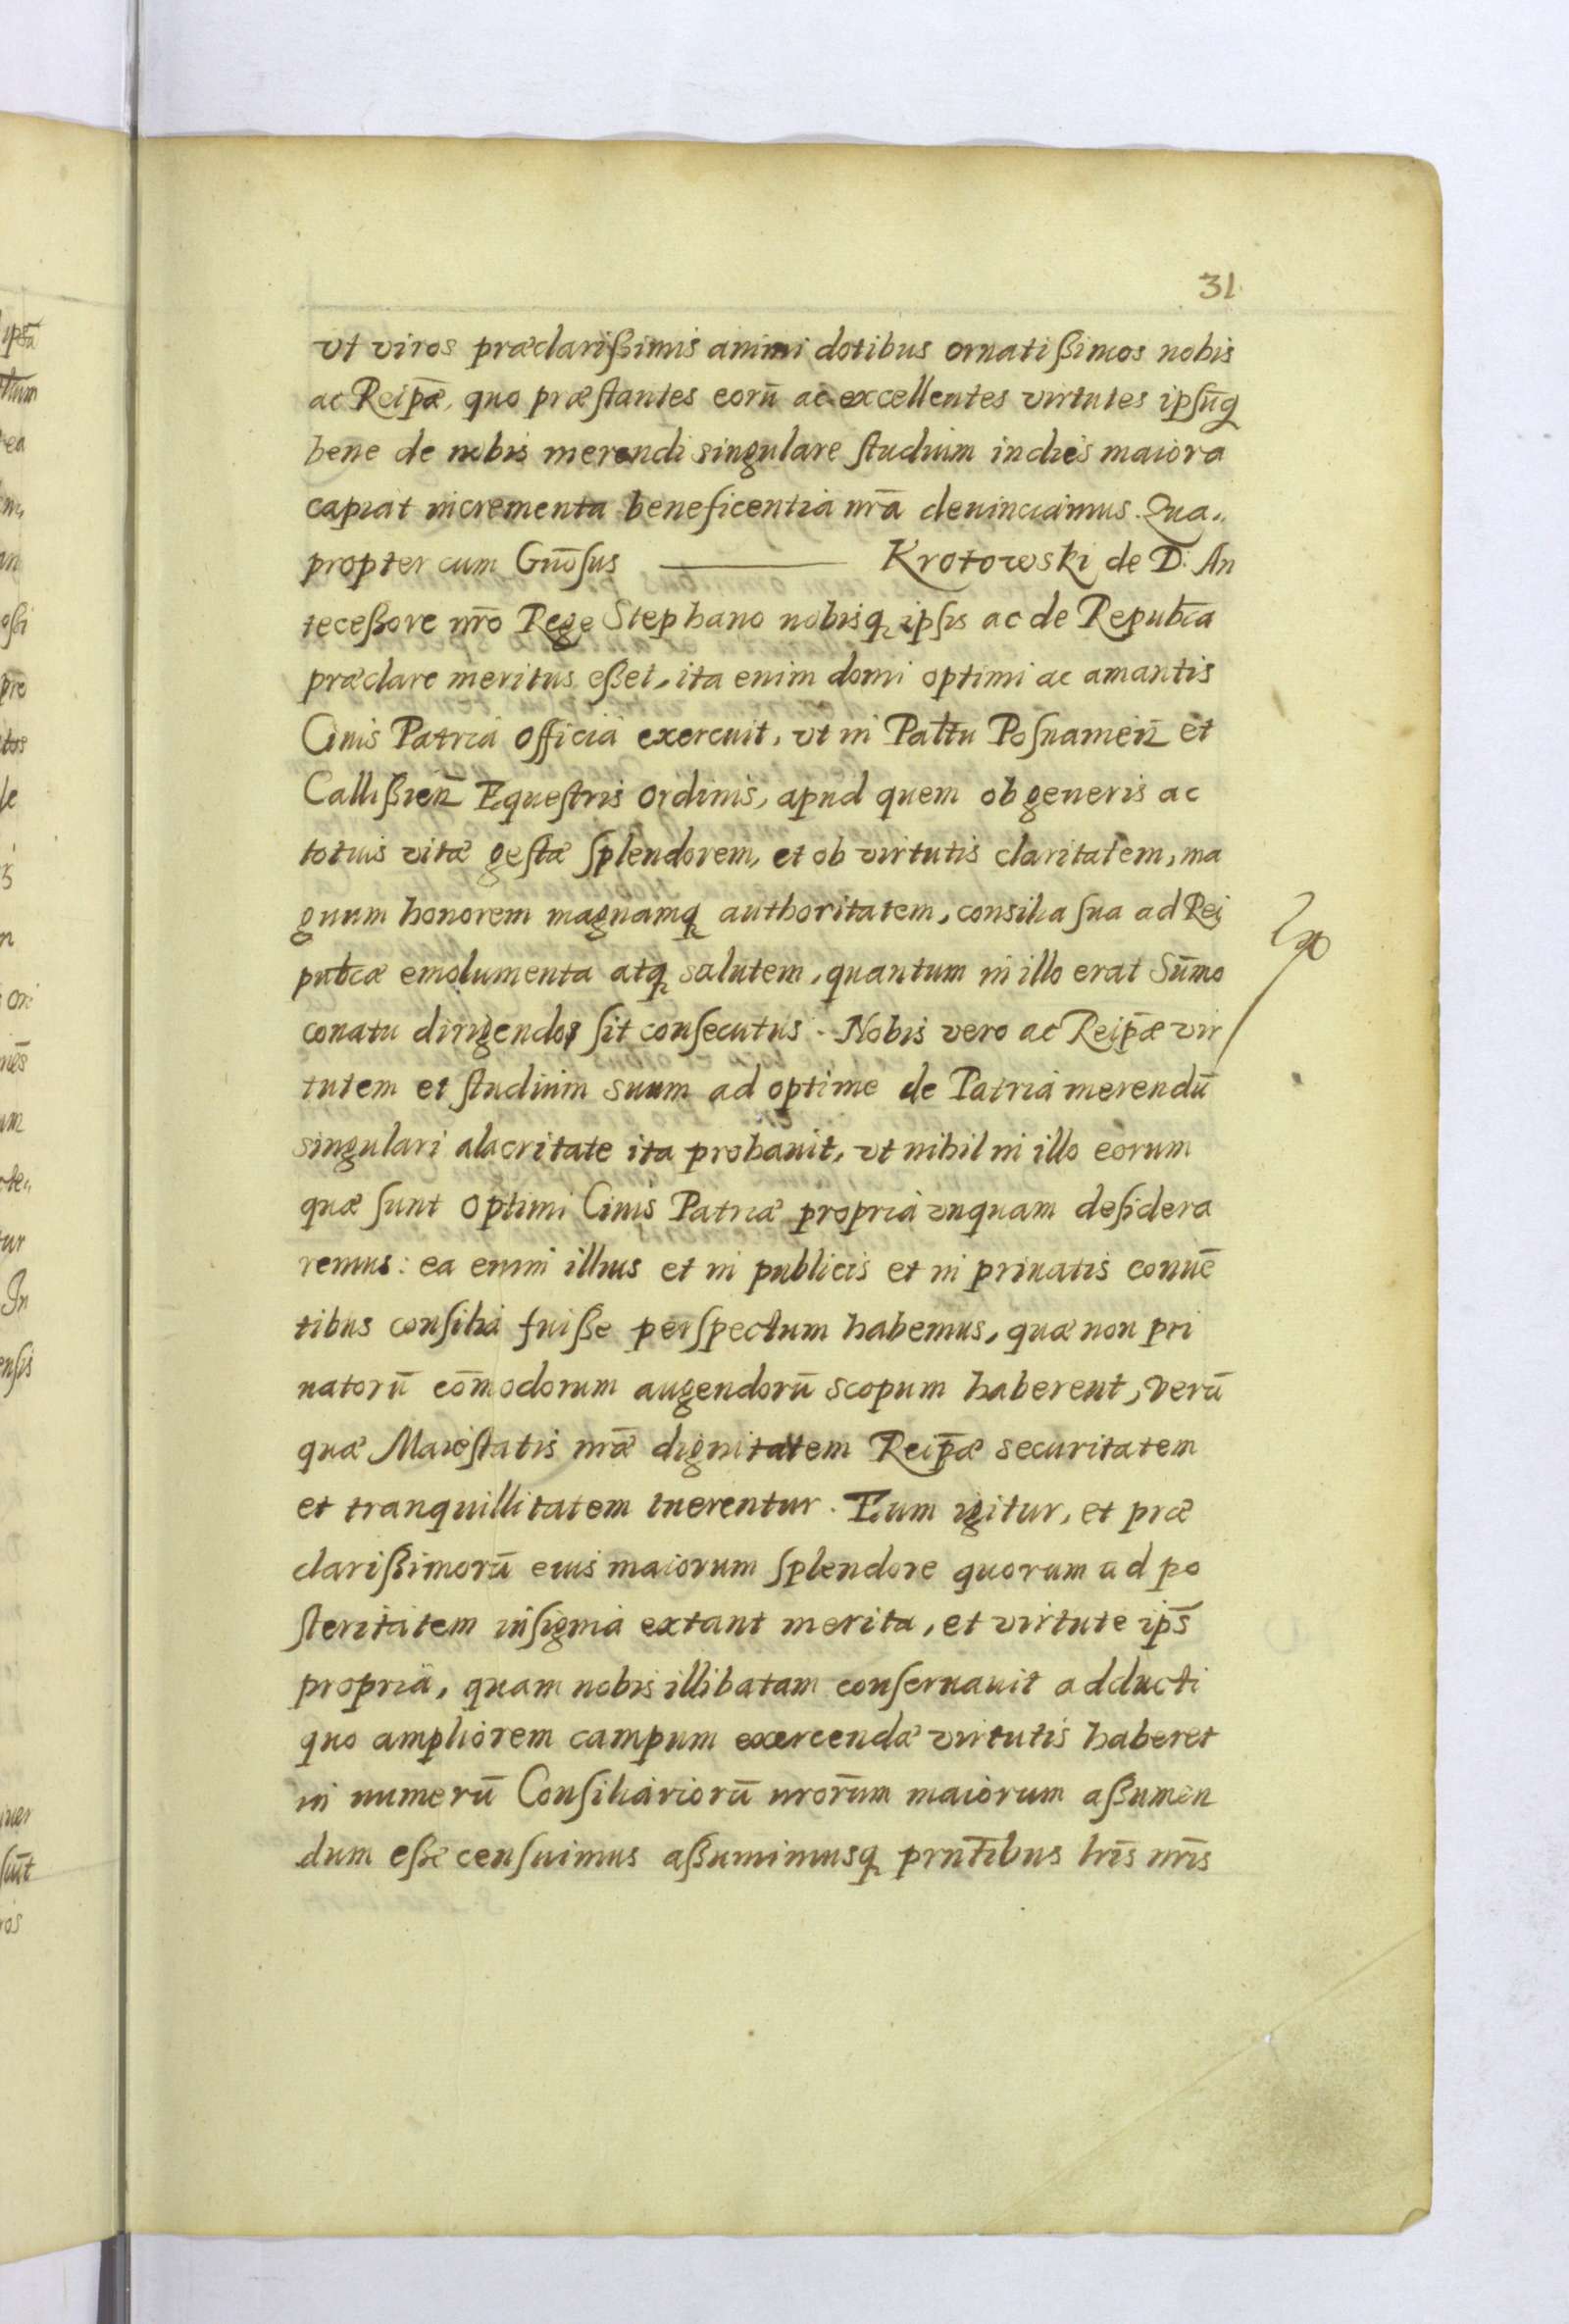 31
vt viros præclarißimis animi dotibus ornatißimos nobis
ac Reip̄æ, quo præstantes eorū ac excellentes virtutes ipsūq
bene de nobis merendi singulare studium indies maiora
capiat incrementa beneficentia nr̄a deuinciamus. Qua„
propter cum Gn̄osus ——— Krotowski de D. An
teceßore nr̄o Rege Stephano nobisq ipsis ac de Republ̄ca
præclare meritus eßet, ita enim domi optimi ac amantis
Ciuis Patria officia exercuit, vt in Pal̄tu Posnamen̄ et
Callißien̄ Equestris Ordinis, apud quem ob generis ac
totius vitæ gestæ splendorem, et ob virtutis claritatem, ma
gnum honorem magnamq authoritatem, consilia sua ad Rei
publ̄cæ emolumenta atq salutem, quantum in illo erat Sum̄o
conatu dirigendos sit consecutus. Nobis vero ac Reip̄æ vir
tutem et studium suum ad optime de Patria merendū
singulari alacritate ita probauit, vt nihil in illo eorum
quæ sunt optimi Ciuis Patriæ propria vnquam desidera
remus: ea enim illius et in publicis et in priuatis conuē
tibus consilia fuiße perspectum habemus, quæ non pri
uatorū com̄odorum augendorū scopum haberent, verū
quæ Maiestatis nr̄æ dignitatem Reip̄æ securitatem
et tranquillitatem tuerentur. Eum igitur, et præ
clarißimorū eius maiorum splendore quorum ad po
steritatem insignia extant merita, et virtute ip̄s
propria, quam nobis illibatam conseruauit adducti
quo ampliorem campum exercendæ virtutis haberet
in numerū Consiliariorū nror̄um maiorum aßumen
dum eße censuimus aßumimusq prn̄tibus lr̄is nr̄is